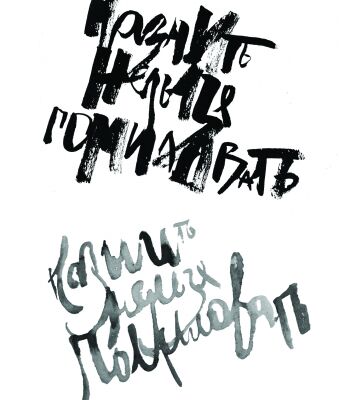 казнить
нельзя
помиловать
казнить
нельзя
помиловать